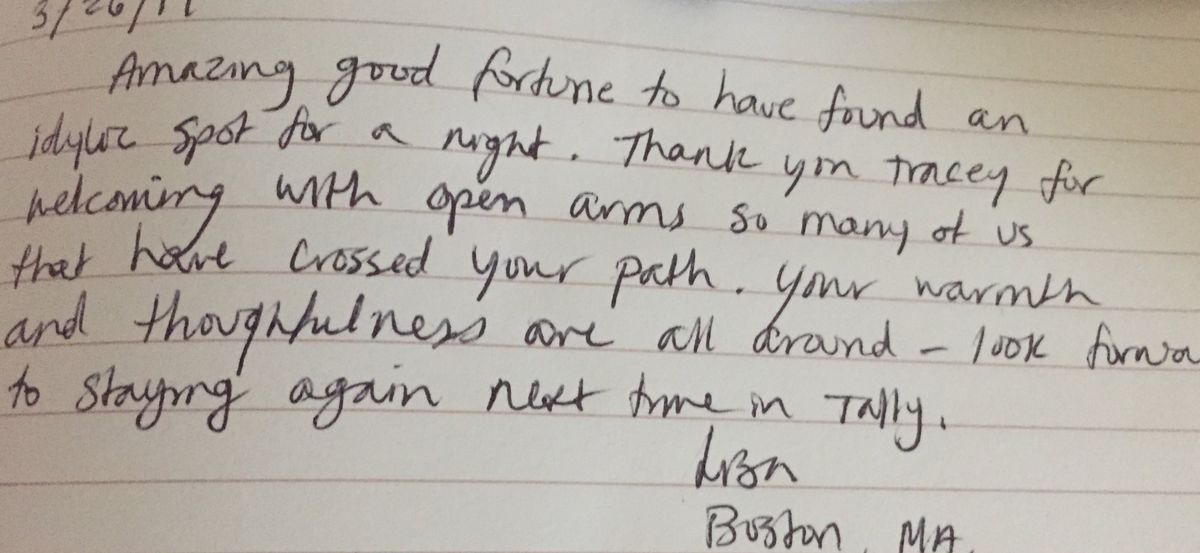 3/26/17
Amazing good fortune to have found an
idylic spot for a night. Thank you Tracey for
welcoming with open arms so many of us
that have crossed your path. Your warmth
and thoughtfulness are all around - look forwa
to staying again next time in Tally.
Boston, MA.